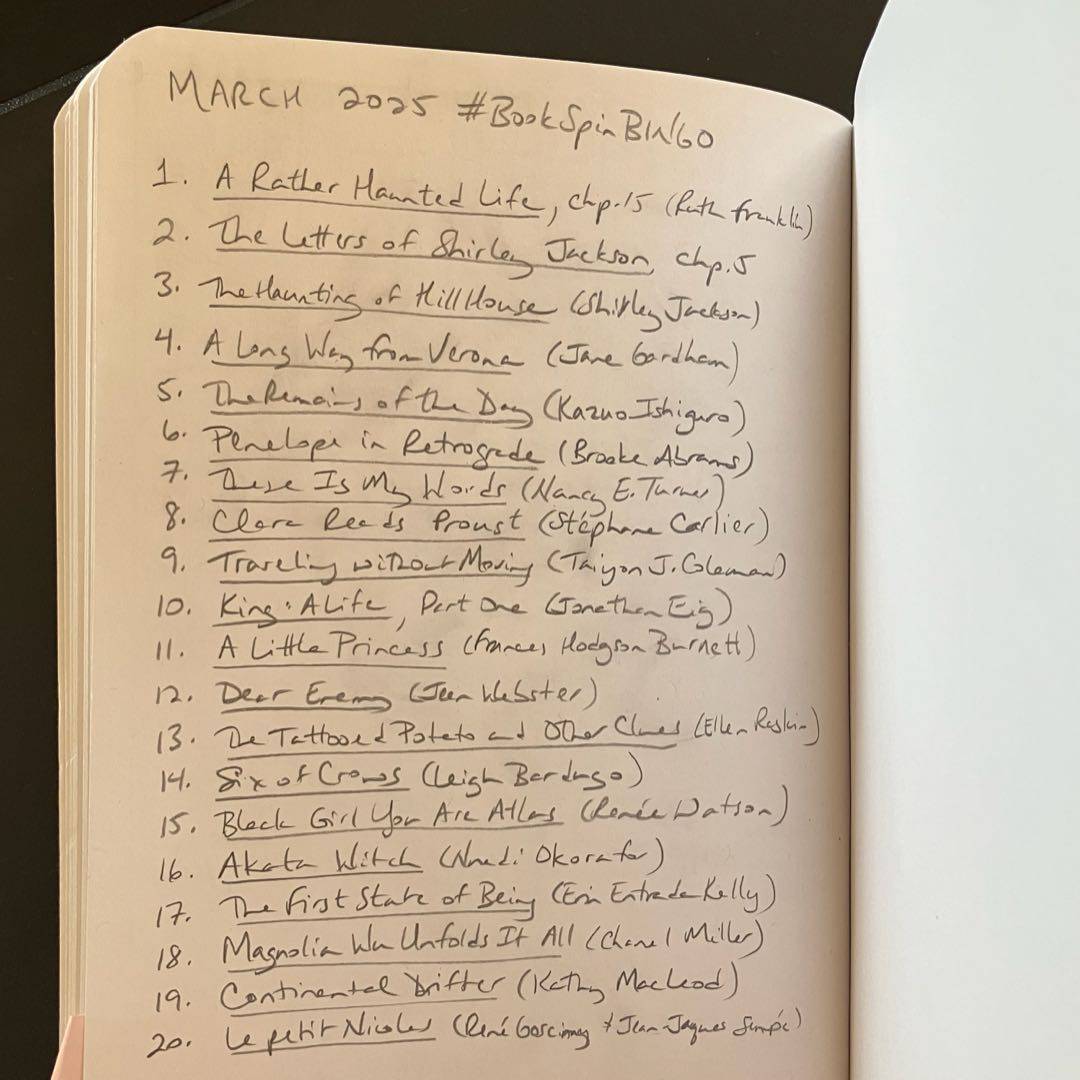 MARCH 2025 #BookSpinBINGO
1. A Rather Haunted Life, chp.15 (Ruth Franklin)
2. The Letters of Shirley Jackson, chp.5
3. The Haunting of Hill House (Shirley Jackson)
4. A Long Way from Verona (Jane Gardham)
5. The Remains of the Day (Kazuo Ishiguro)
6. Penelope in Retrograde (Brooke Abrams)
7. These Is My Words (Nancy E. Turner)
8. Clara Reads Proust (Stéphane Carlier)
9. Traveling without Moving (Taiyon J. Coleman)
10. King: A Life, Part One (Jonathan Eig)
11. A Little Princess (Frances Hodgson Burnett)
12. Dear Enemy (Jean Webster)
13. The Tattooed Potato and Other Clues (Ellen Raskin)
14. Six of Crows (Leigh Bardugo)
15. Black Girl You Are Atlas (Renée Watson)
16. Akata Witch (Nnedi Okorafor)
17. The First State of Being (Erin Entrada Kelly)
18. Magnolia Wu Unfolds It All (Chanel Miller)
19. Continental Drifter (Kathy MacLeod)
20. Le petit Nicolas (René Goscinny + Jean-Jaques Sempé)